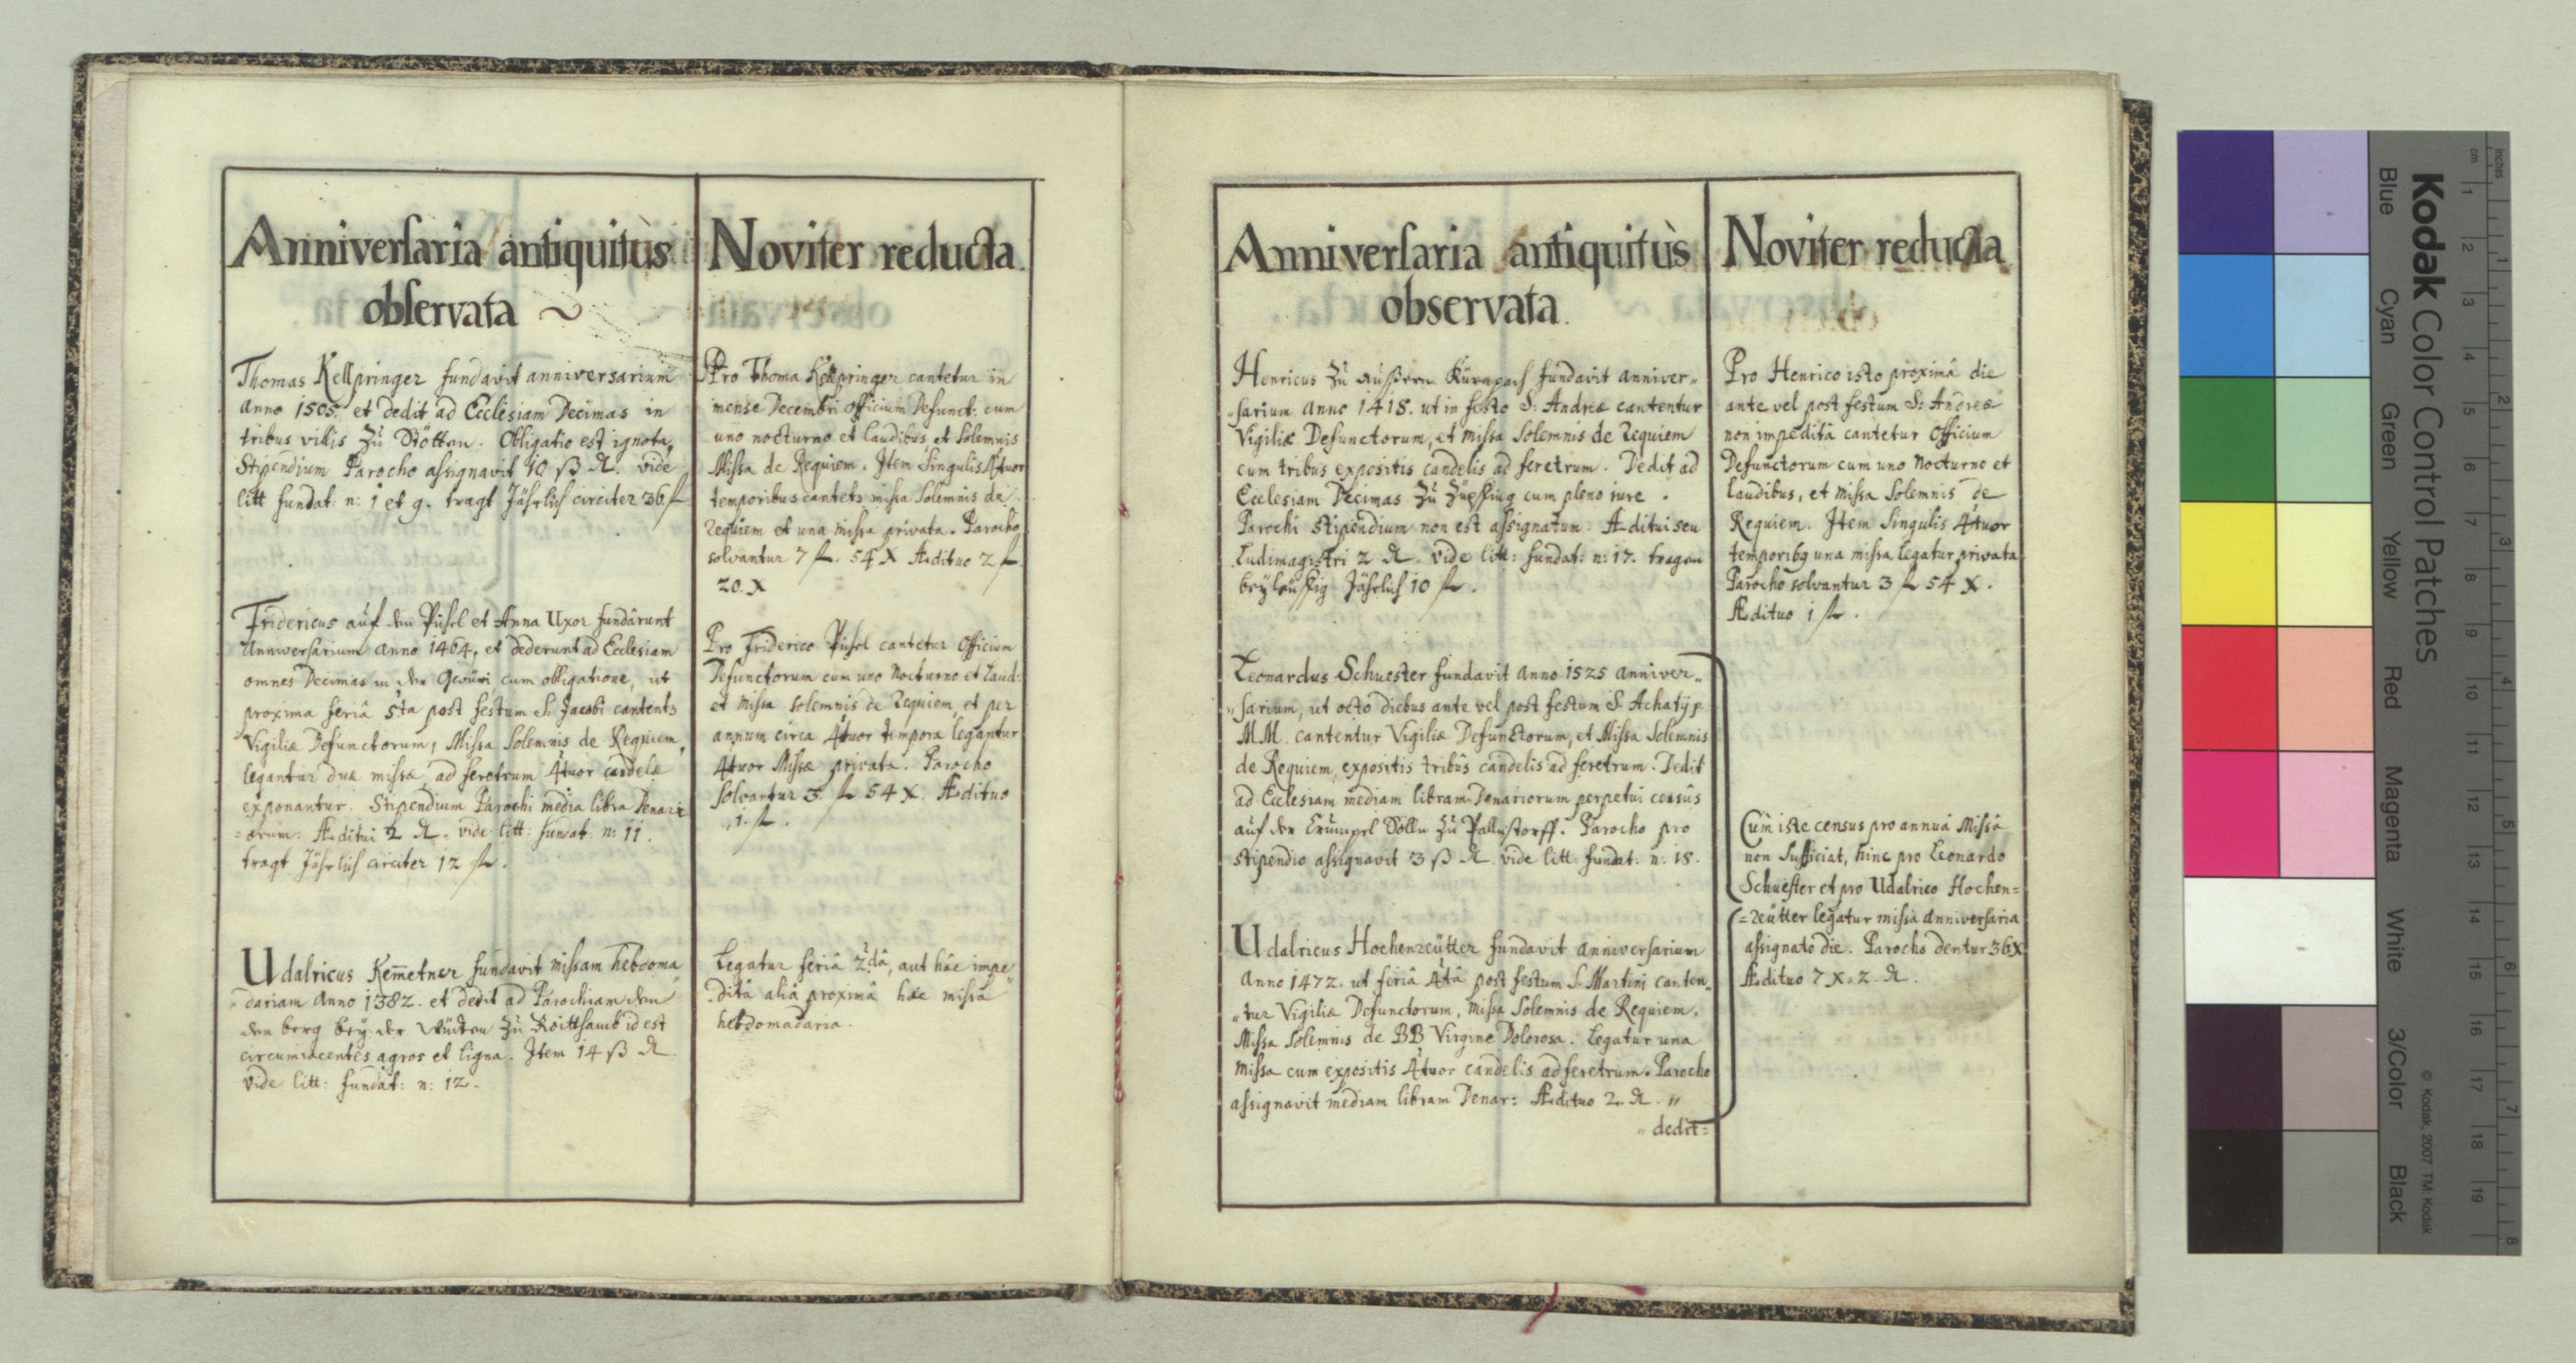 Anniversaria antiquitùs
observata ~
Thomas Kellpringer fundavit anniversarium
anno 1505. et dedit ad Ecclesiam Decimas in
tribus villis zu Stötten. Obligatio est ignota,
Stipendium Parocho assignavit 10 ß ₰. vide
litt fundat: n: 1 et 9. tragt Jährlich circiter 36 fl
Fridericus auf dem Pühel et Anna Uxor fundârunt
Anniversarium anno 1464, et dederunt ad Ecclesiam
omnes Decimas in der cum obligatione, ut
proxima feriâ 5ta post festum S. Jacobi cantentʒ
Vigiliæ Defunctorum, Missa Solemnis de Requiem,
legantur duæ missæ, ad feretrum 4tuor candelæ
exponantur. Stipendium Parochi media libra Denari
=orum: Æditui 2 ₰. vide litt: fundat. n: 11.
tragt Jährlich circiter 12 fl.
Udalricus Kem̄etner fundavit missam hebdoma
=dariam Anno 1382. et dedit ad Parochiam den
den berg bey der zu id est
circumiacentes agros et ligna. Item 14 ß ₰
vide litt: fundat: n: 12.
Noviter reducta.
Pro Thoma Kellpringer cantetur in
mense Decembri officium Defunct: cum
uno nocturno et laudibus et Solemnis
Missa de Requiem. Item Singulis 4tuor
temporibus cantetʒ missa Solemnis de
requiem et una missa privata. Parocho
solvantur 7 fl. 54 X Ædituo 2 fl.
20. X
Pro Friderico Pühel cantetur Officium
Defunctorum cum uno Nocturno et Laud:
et missa solemnis de Requiem et per
annum circa 4tuor tempora legantur
4tuor Missæ privatæ. Parocho
Solvantur 3 fl 54 X. Ædituo
1. fl.
Legatur feriâ 2dâ, aut hâc impe
ditâ aliâ proximâ hæc missa
hebdomadaria.
Anniversaria antiquitùs
observata.
Henricus zu aussern fundavit anniver„
„sarium anno 1418. ut in festo S: Andreæ cantentur
Vigiliæ Defunctorum, et missa Solemnis de requiem
cum tribus expositis candelis ad feretrum. Dedit ad
Ecclesiam Decimas zu cum pleno iure.
Parochi stipendium non est assignatum. Æditui seu
Ludimagistri 2 ₰. vide litt: fundat: n: 17. tragen
beyleuffig Jährlich 10 fl.
Leonardus Schuester fundavit anno 1525 anniver„
„sarium, ut octo diebus ante vel post festum S. Achatij p.
M.M. cantentur Vigiliæ Defunctorum, et Missa Solemnis
de Requiem, expositis tribus candelis ad feretrum. Dedit
ad Ecclesiam mediam libram Denariorum perpetui censûs
auf der Sölln zu Pallnstorff. Parocho pro
stipendio assignavit 3 ß ₰. vide litt: fundat. n: 18.
Udalricus Hochenreütter fundavit anniversarium
Anno 1472. ut feriâ 4tâ post festum S. Martini canten„
„tur Vigiliæ Defunctorum, missa Solemnis de Requiem,
Missa Solemnis de BB Virgine Dolorosa. Legatur una
missa cum expositis 4tuor candelis ad feretrum. Parocho
assignavit mediam libram Denar: Ædituo 2. ₰. „
„ dedit=
Noviter reducta
Pro Henrico isto proximâ die
ante vel post festum S: Andreæ
non impeditâ cantetur Officium
Defunctorum cum uno Nocturno et
laudibus, et missa Solemnis de
Requiem. Item Singulis 4tuor
temporibꝯ una missa legatur privata
Parocho solvantur 3 fl 54 X.
Ædituo 1 fl.
Cum iste census pro annuâ Missâ
non Sufficiat, hinc pro Leonardo
Schuester et pro Udalrico Hochen=
=reütter legatur missa anniversaria
assignato die. Parocho dentur 36 X
Ædituo 7 X. 2. ₰.
Kodak Color Control Patches
© Kodak, 2007 TM: Kodak
Blue Cyan Green Yellow Red Magenta White 3/Color Black
cm 1 2 3 4 5 6 7 8 9 10 11 12 13 14 15 16 17 18 19
inches 1 2 3 4 5 6 7 8